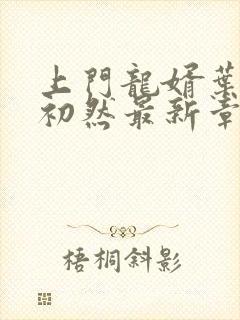 上門龍婿葉
初然最新章
梧桐斜影